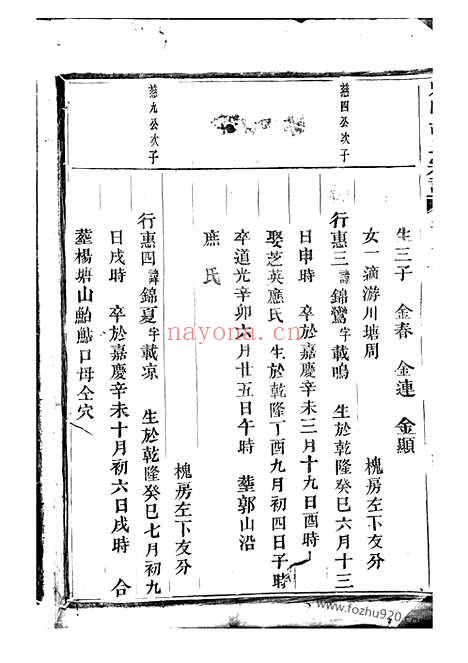 慈四公次子
慈九公次子
生三子 金春 金連 金顯
女一適游川塘周 槐房左下友分
行惠三諱錦鸞字載鳴 生於乾隆癸巳六月十三
日申時 卒於嘉慶辛未三月十九日酉時
娶芝英應氏 生於乾隆丁酉九月初四日子時
卒道光辛卯六月廿五日午時 葬郭山沿
應氏 槐房左下友分
行惠四諱錦夏字載凉 生於乾隆癸巳七月初九
日戌時 卒於嘉慶辛未十月初六日戌時 合
葬楊塘山鮎口母仝穴
nayona.cn
www.fozhu920.com